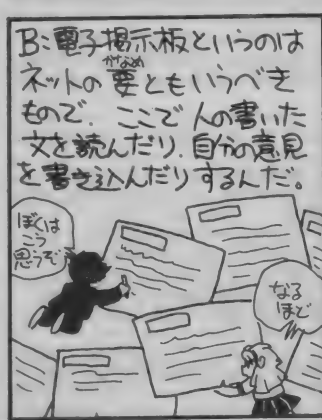 B：電子掲示板というのは
ネットの要ともいうべき
かなめ
もので、ここで人の書いた
文を読んだり、自分の意見
を書き込んだりするんだ。
ぼくは
こう
思うぞ
なる
ほど